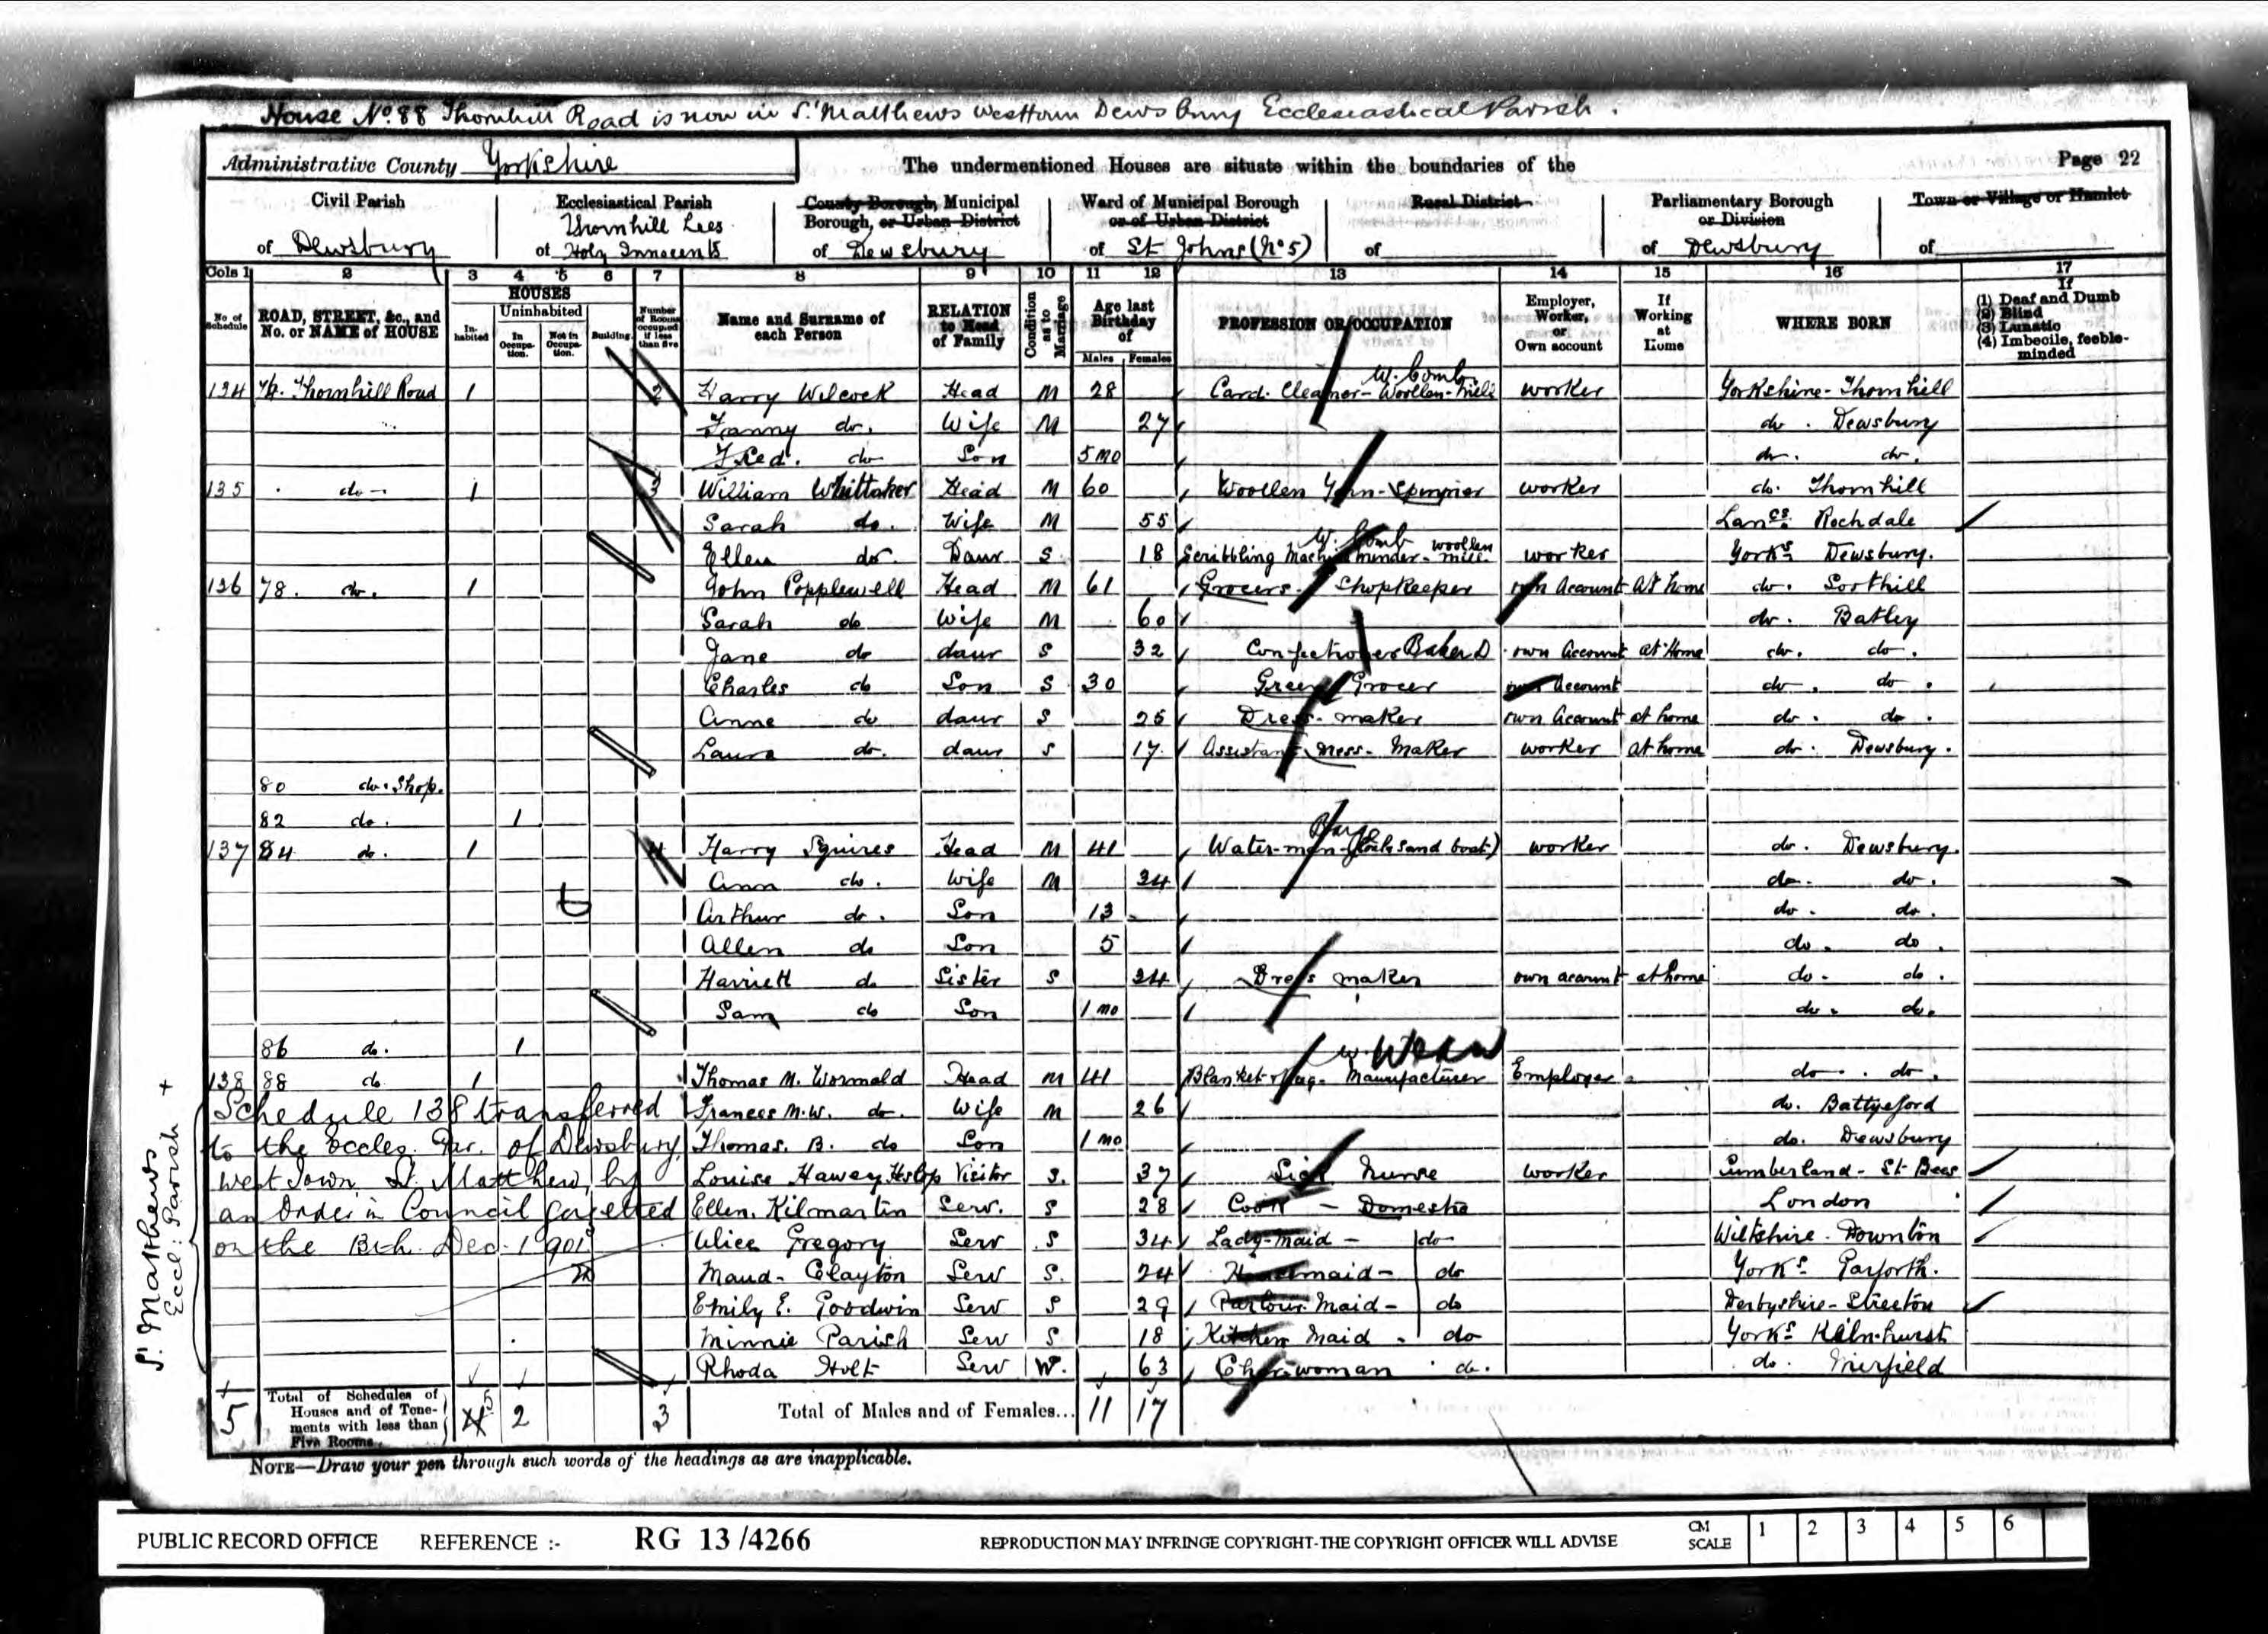 House No. 88 Thornhill Road is now in St Matthews Westtown Dewsbury Ecclesiastical Parish.
Administrative County Yorkshire The undermentioned Houses are situate within the boundaries of the Page 22
Civil Parish Ecclesiastical Parish County Borough, Municipal Borough, or Urban District Ward of Municipal Borough or of Urban District Rural District Parliamentary Borough or Division Town or Village or Hamlet
Thornhill Lees
of Dewsbury of Holy Innocents of Dewsbury of St Johns (No 5) of of Dewsbury of
Cols 1 2 3 4 5 6 7 8 9 10 11 12 13 14 15 16 17
No. of Schedule ROAD, STREET, &c., and No. or NAME of HOUSE HOUSES Inhabited Uninhabited In Occupation. Not in Occupation. Building. Number of Rooms occupied if less than five Name and Surname of each Person RELATION to Head of Family Condition as to Marriage Age last Birthday of Males Females PROFESSION OR OCCUPATION Employer, Worker, or Own account If Working at Home WHERE BORN If (1) Deaf and Dumb (2) Blind (3) Lunatic (4) Imbecile, feeble-minded
W. Comb
134 Thornhill Road 1 2 Harry Wilcock Head M 28 Card. Cleaner - Woollen-Mill worker Yorkshire - Thornhill
Fanny do. Wife M 27 do. Dewsbury
Fred. do Son 5 mo do. do.
135 do 1 3 William Whittaker Head M 60 Woollen Yarn-Spinner worker do. Thornhill
Sarah do. Wife M 55 Lancs. Rochdale
W. Comb
Ellen do. Daur S 18 Scribbling Machine minder - woollen mill worker Yorks Dewsbury.
136 78. do. 1 John Popplewell Head M 61 Grocers. Shopkeeper own Account At home do. Soothill
Sarah do Wife M 60 do. Batley
Jane do daur S 32 Confectioner Baker D own Account at Home do. do.
Charles do Son S 30 Green Grocer own Account do. do.
Anne do daur S 25 Dress-maker own Account at home do. do.
Laura do. daur S 17 Assistant Dress-Maker worker at home do. Dewsbury.
80 do. Shop.
82 do. 1
Barge
137 84 do. 1 4 Harry Squires Head M 41 Water-man - ( sand boat) worker do. Dewsbury.
Ann do. Wife M 34 do. do.
Arthur do. Son 13 do. do.
Allen do Son 5 do. do.
Harriett do Sister S 24 Dress maker own account at home do. do.
Sam do Son 1 mo do. do.
86 do. 1
138 88 do 1 Thomas M. Wormald Head M 41 Blanket & Rug. Manufacturer Employer do. do.
Schedule 138 transferred Frances M.W. do. Wife M 26 do. Battyeford
to the Eccles. Par. of Dewsbury, Thomas. B. do Son 1 mo do. Dewsbury
West Town, St. Matthew, by Louise Visitor S. 37 Sick Nurse worker Cumberland - St Bees
an Order in Council gazetted Ellen. Kilmartin Serv. S 28 Cook - Domestic London
on the 13th. Dec. 1901 Alice Gregory Serv S 34 Lady-maid - do Wiltshire - Downton
Maud - Clayton Serv S. 24 Housemaid - do Yorks. Garforth.
Emily E. Goodwin Serv S 29 Parlour Maid - do Derbyshire - Stretton
Minnie Parish Serv S 18 Kitchen Maid - do Yorks Kilnhurst
Rhoda Holt Serv W. 63 Charwoman do. do. Mirfield
St Matthews
Eccl: Parish +
5 Total of Schedules of Houses and of Tenements with less than Five Rooms 5 2 3 Total of Males and of Females... 11 17
NOTE—Draw your pen through such words of the headings as are inapplicable.
PUBLIC RECORD OFFICE REFERENCE :- RG 13 /4266 REPRODUCTION MAY INFRINGE COPYRIGHT-THE COPYRIGHT OFFICER WILL ADVISE CM SCALE 1 2 3 4 5 6